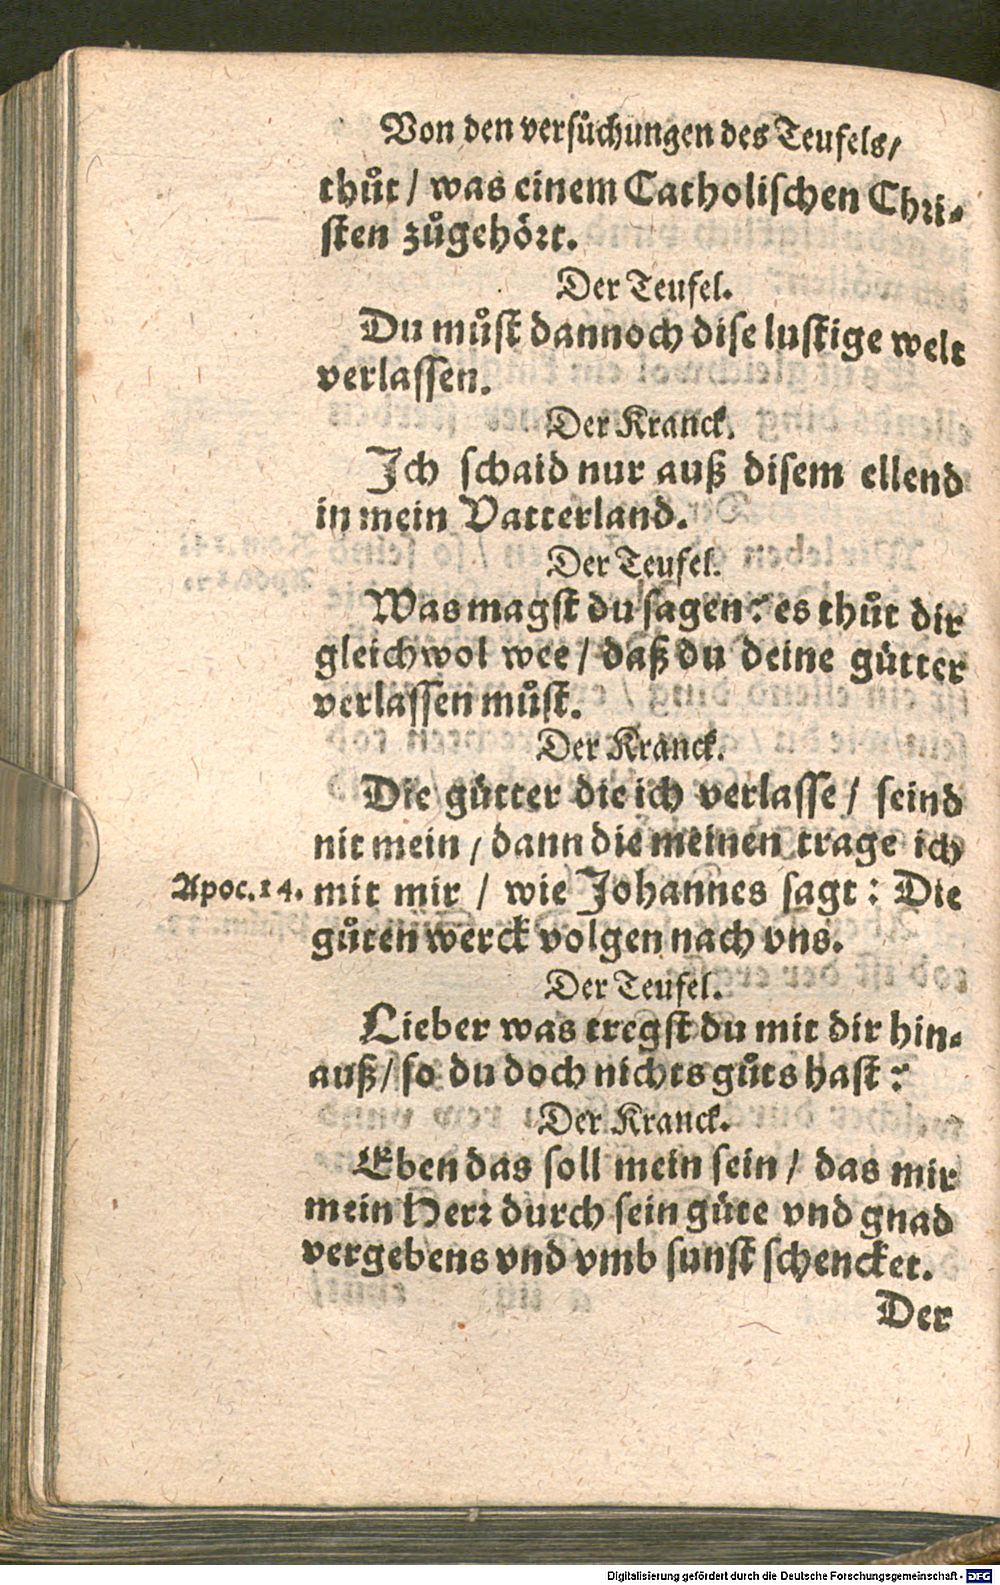 Von den versůchungen des Teufels/
thůt / was einem Catholischen Chri-
sten zůgehört.
Der Teufel.
Du můst dannoch dise lustige welt
verlassen.
Der Kranck.
Ich schaid nur auß disem ellend
in mein Vatterland.
Der Teufel.
Was magst du sagen? es thůt dir
gleichwol wee / daß du deine gütter
verlassen můst.
Der Kranck.
Die gütter die ich verlasse / seind
nit mein / dann die meinen trage ich
Apoc. 14. mit mir / wie Johannes sagt: Die
gůten werck volgen nach vns.
Der Teufel.
Lieber was tregst du mit dir hin-
auß / so du doch nichts gůts hast?
Der Kranck.
Eben das soll mein sein / das mir
mein Herr durch sein güte vnd gnad
vergebens vnd vmb sunst schencket.
Der
Digitalisierung gefördert durch die Deutsche Forschungsgemeinschaft - DFG